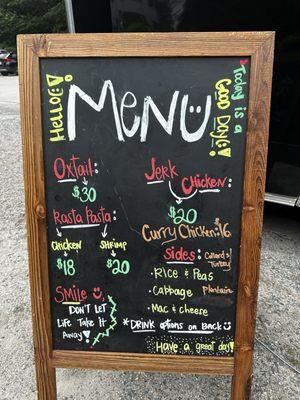 Hello!
MENU
Today is a
Good Day!
Oxtail:
$30
Rasta Pasta:
Chicken
Shrimp
$18
$20
Smile
Don't let
Life take it
Away
Jerk
Chicken:
$20
Curry Chicken: $16
Sides:
Collards/
Turkey
Plantain
• Rice & Peas
• Cabbage
• Mac & cheese
*Drink options on Back
Have a great day!